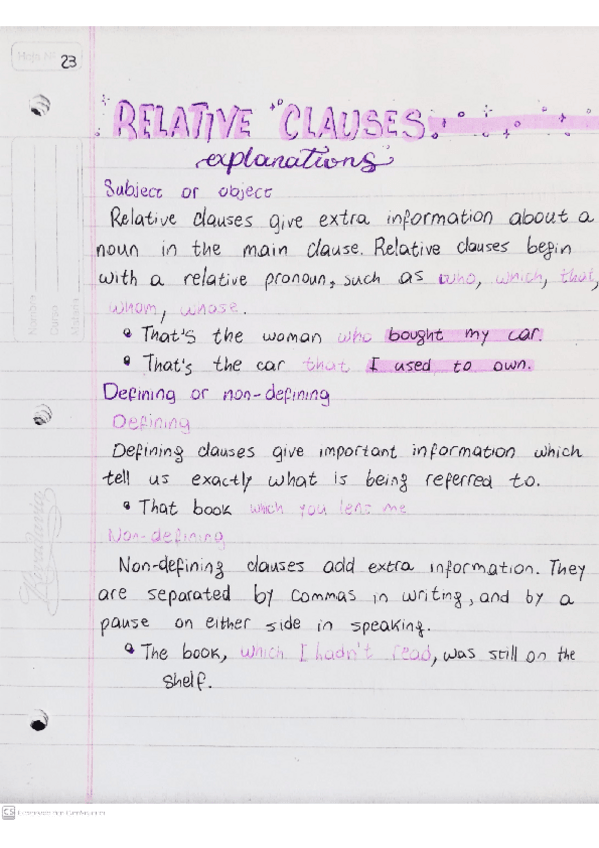 Hoja Nº 23
RELATIVE CLAUSES.
explanations
Subject or object
Relative clauses give extra information about a
noun in the main clause. Relative clauses begin
with a relative pronoun, such as who, which, that,
whom, whose.
• That's the woman who bought my car.
• That's the car that I used to own.
Defining or non-defining
Defining
Defining clauses give important information which
tell us exactly what is being referred to.
• That book which you lent me
Non-defining
Non-defining clauses add extra information. They
are separated by commas in writing, and by a
pause on either side in speaking.
• The book, which I hadn't read, was still on the
shelf.
Nombre
Materia
CS